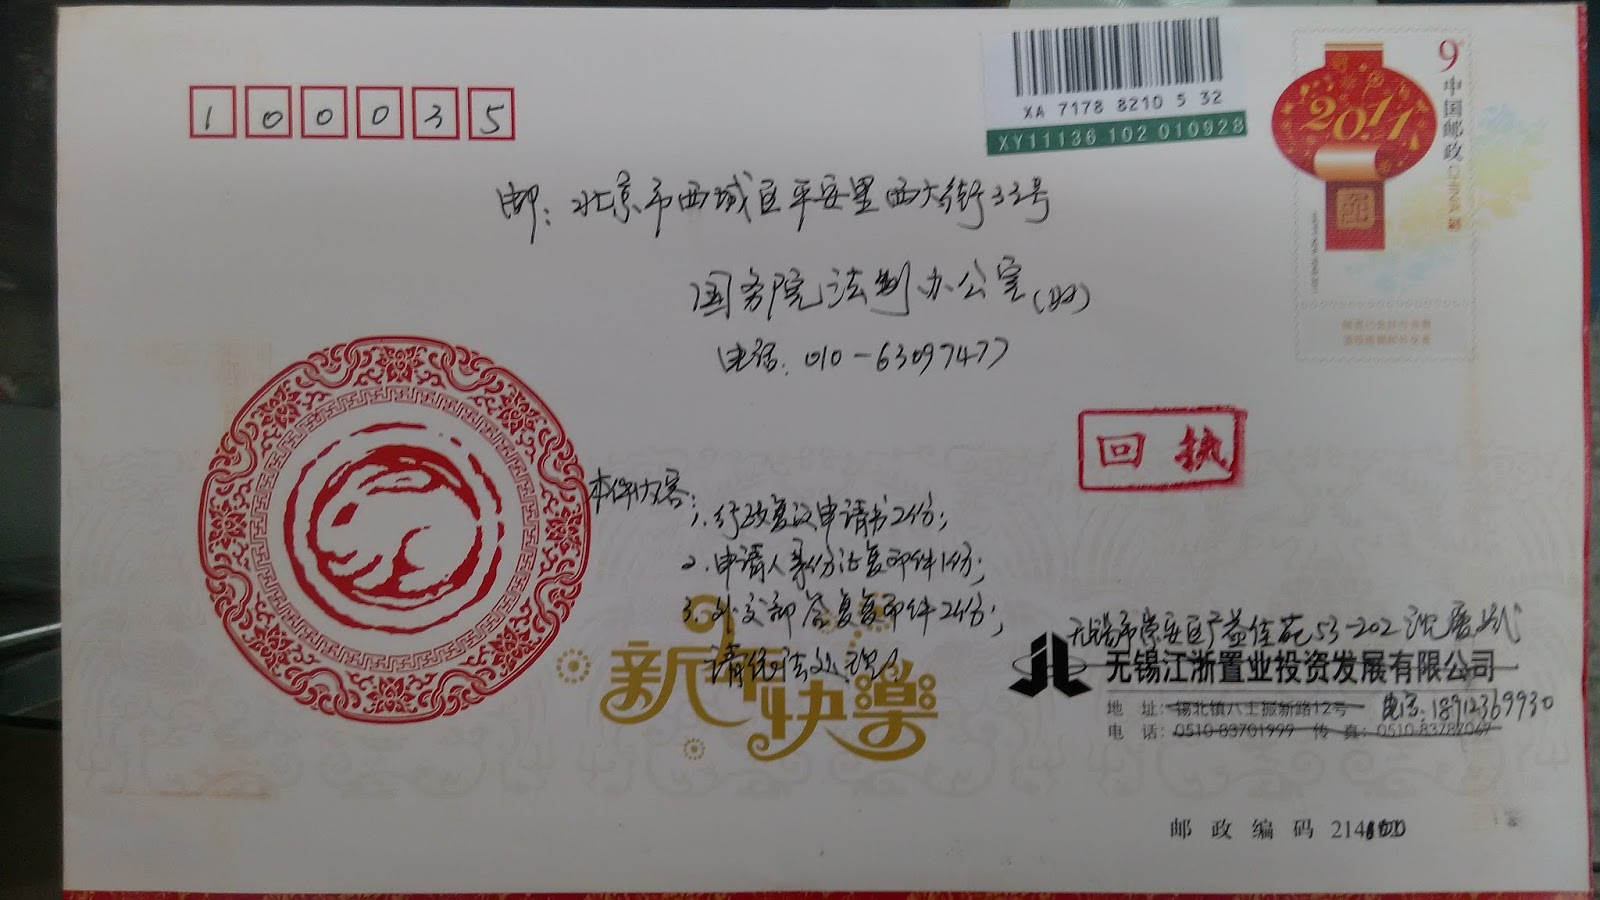 100035
XA 7178 8210 5 32
XY11136 102 010928
9
中国邮政 CHINA
2011
邮:北京市西城区平安里西大街33号
国务院法制办公室(收)
电话:010-63097477
回执
本件内容:
1.行政复议申请书2份;
2.申请人身份证复印件1份;
3.外交部答复复印件2份;
请依法处理!
新年快樂
无锡市崇安区广益佳苑53-202沈爱斌
无锡江浙置业投资发展有限公司
地 址:锡北镇八士振新路12号 电话:18912369930
电 话:0510-83701999 传 真:0510-83787067
邮 政 编 码 214